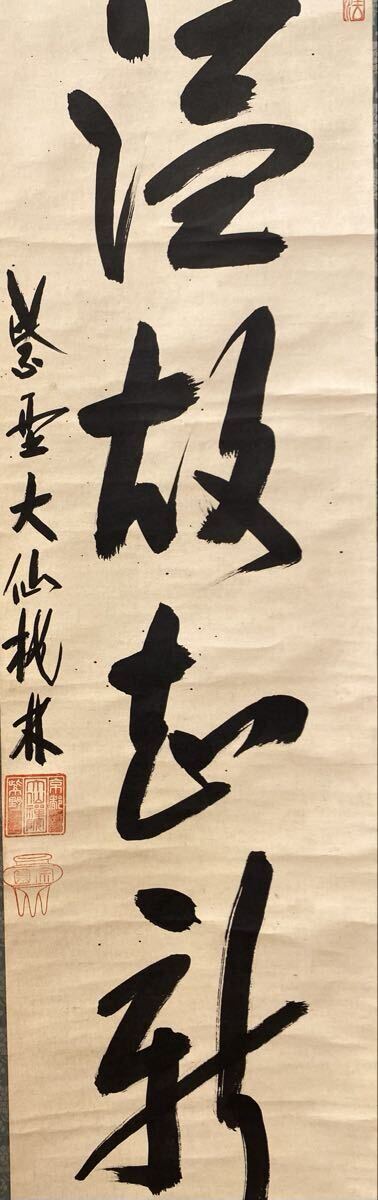 温故知新
紫野大仙桃林